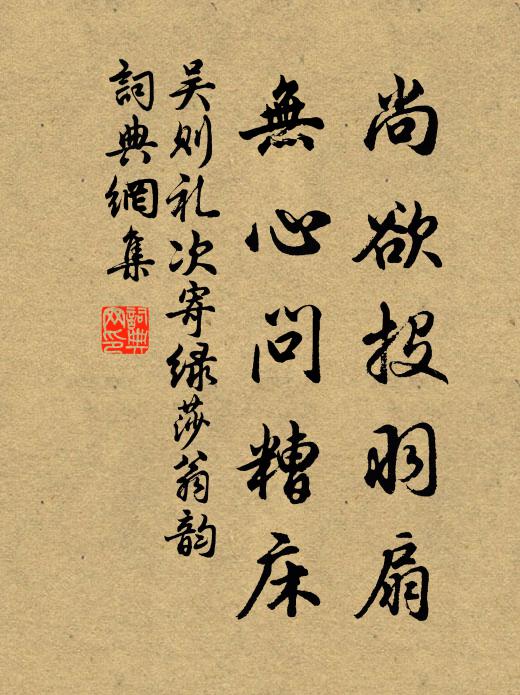 尚欲投羽扇
無心問糟床
吴则礼次寄绿莎翁韵
詞典網集
詞典網印